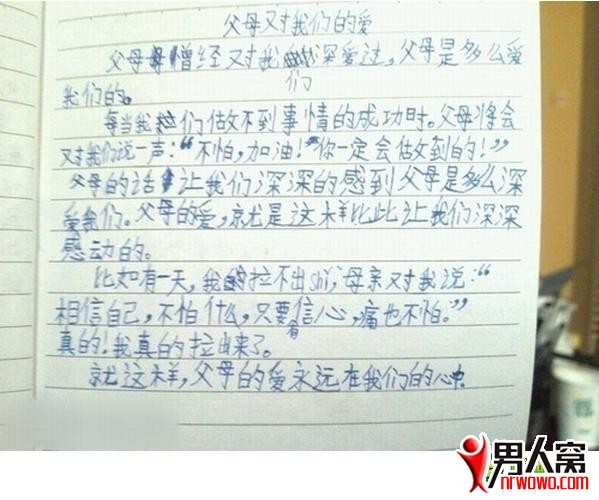 父母对我们的爱
父母曾经对我们深爱过，父母是多么爱
我们的。
每当我们做不到事情的成功时。父母将会
对我们说一声：“不怕，加油！你一定会做到的！”
父母的话让我们深深的感到父母是多么深
爱我们。父母的爱，就是这样比此让我们深深
感动的。
比如有一天，我拉不出shi，母亲对我说：“
相信自己，不怕什么，只要有信心，痛也不怕。”
真的！我真的拉出来了。
就这样，父母的爱永远在我们的心中
男人窝
nrwowo.com